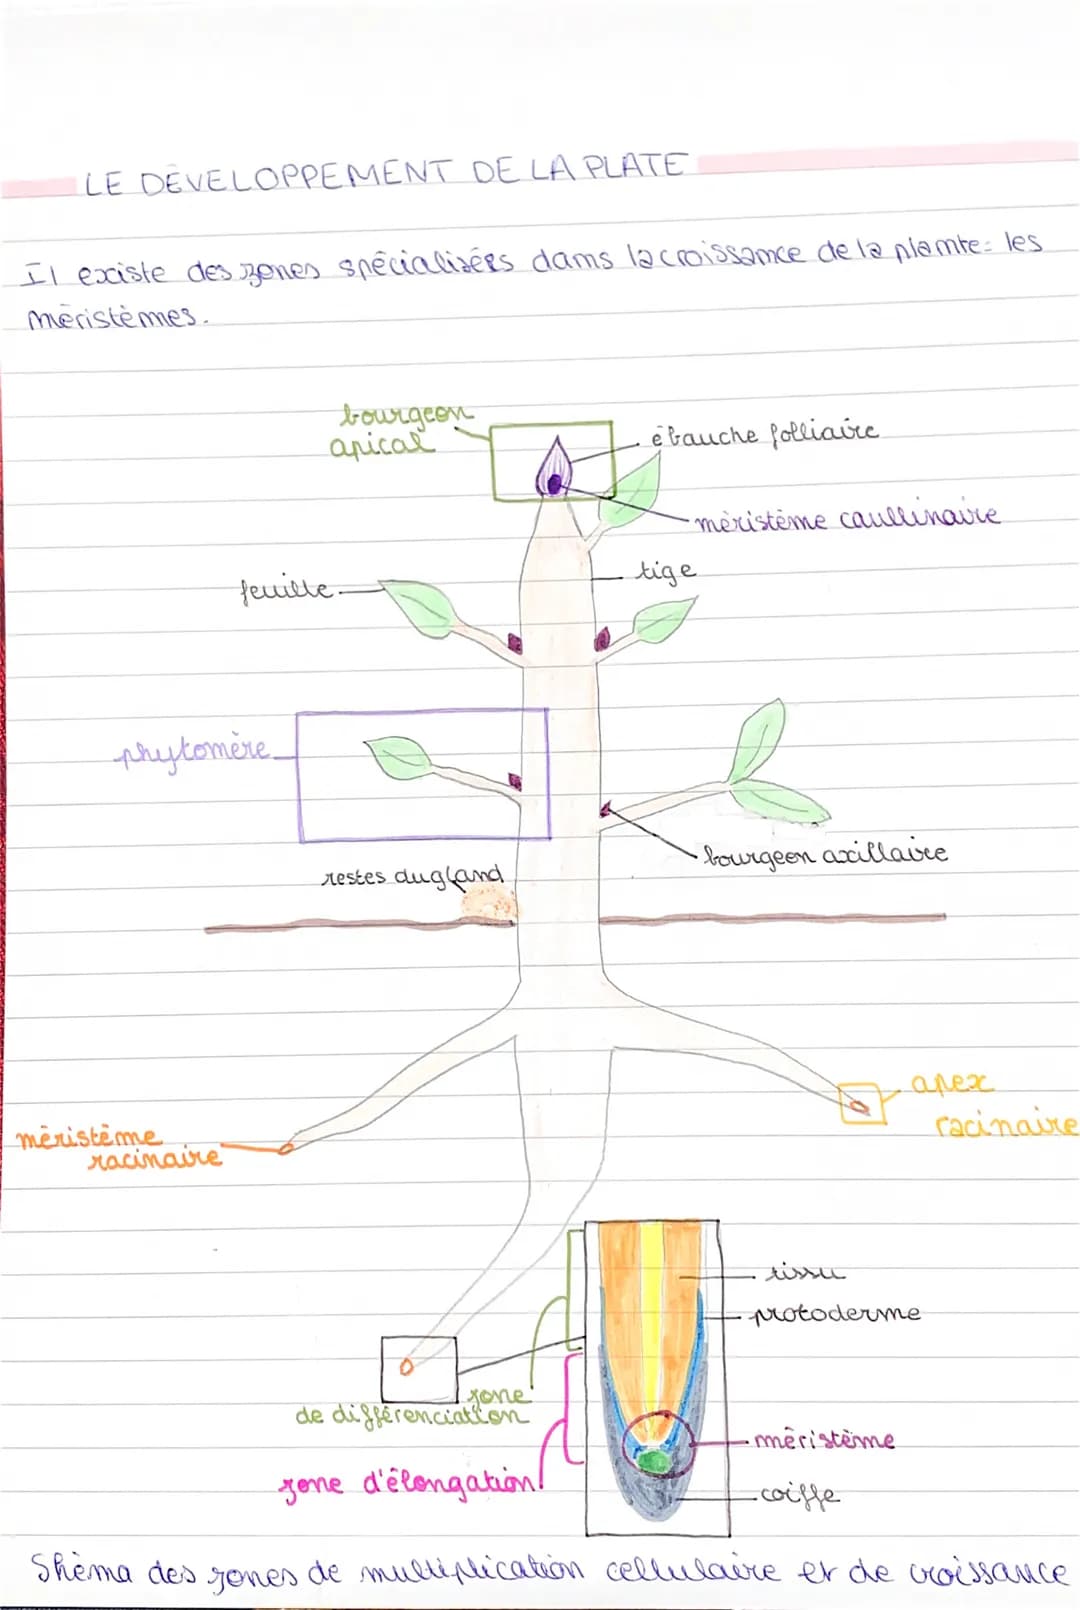 LE DEVELOPPEMENT DE LA PLATE
Il existe des zones spécialisées dans la croissance de la plante: les
méristèmes.
bourgeon
apical
ébauche folliaire
méristème caullinaire
feuille
tige
phytomère
bourgeon axillaire
restes du gland
apex
racinaire
méristème
racinaire
tissu
protoderme
zone
de différenciation
méristème
zone d'élongation
coiffe
Shéma des zones de multiplication cellulaire et de croissance